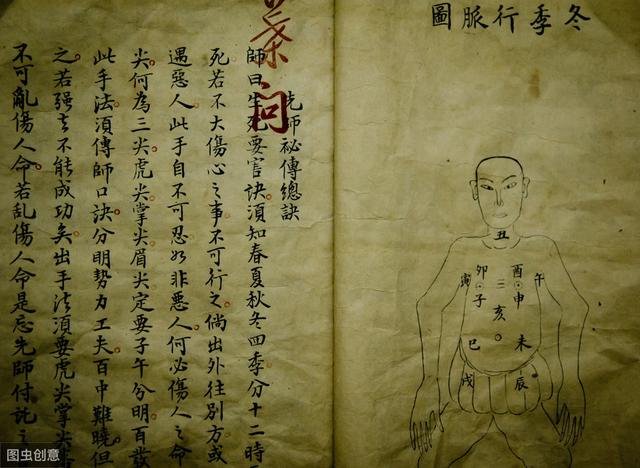 冬季行脈圖
丑
卯 酉
寅 午
子 申
亥
巳 未
戌 辰
葉問
先師祕傳總訣
師曰生死要害訣須知春夏秋冬四季分十二時
死若不大傷心之事不可行之倘出外往別方或
遇惡人此手自不可忍如非惡人何必傷人之命
尖何為三尖虎尖掌尖眉尖定要子午分明百發
此手法須傳師口訣分明勢力工夫百中難曉但
之若强去不能成功矣出手法須要虎尖掌尖
不可亂傷人命若乱傷人命是忘先師付託之
图虫创意